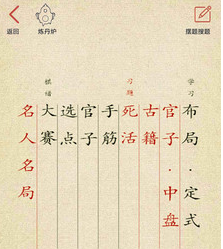 返回
炼丹炉
摆题搜题
学习
布局·定式
官子·中盘
古籍
习题
死活
手筋
官子
选点
棋谱
大赛
名人名局